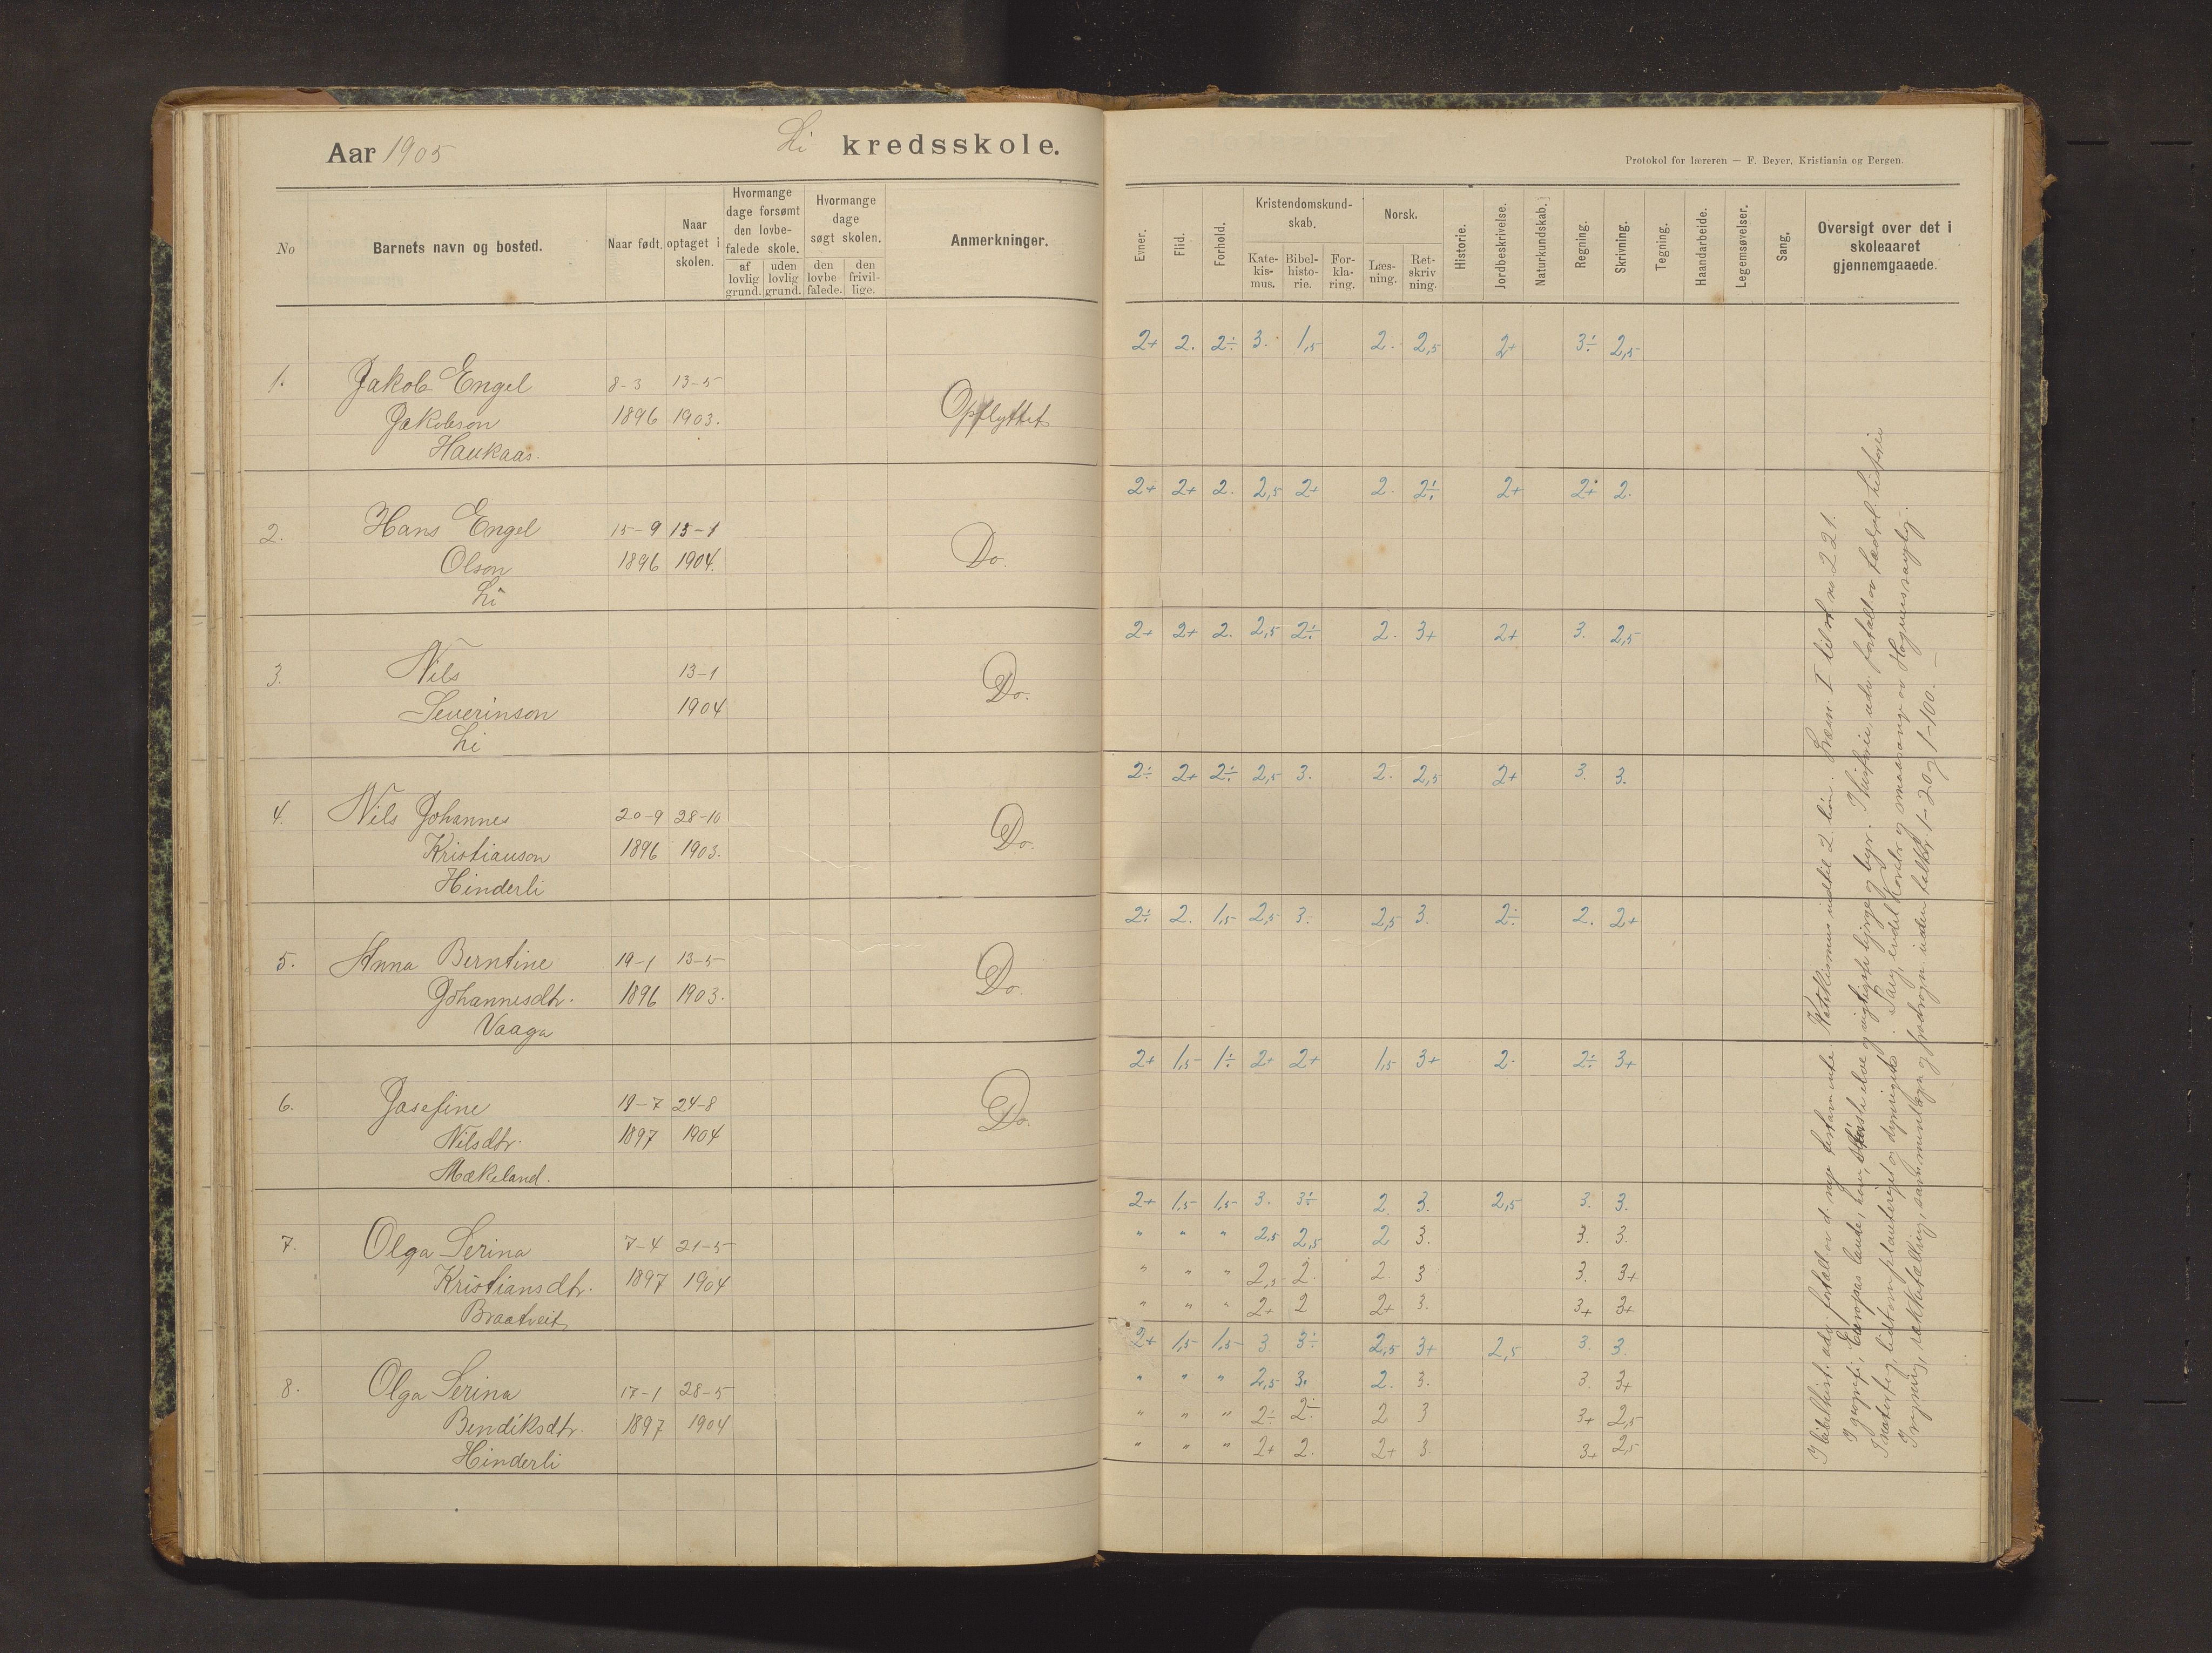 Aar 1905
Li kredsskole.
No
Barnets navn og bosted.
Naar født.
Naar optaget i skolen.
Hvormange dage forsømt den lovbefalede skole.
af lovlig grund.
uden lovlig grund.
Hvormange dage søgt skolen.
den lovbefalede.
den frivillige.
Anmerkninger.
1. Jakob Engel 8-3 13-5
Jakobson 1896 1903. Opflyttet
Haukaas.
2. Hans Engel 15-9 13-1
Olson 1896 1904. Do.
Li
3. Nils 13-1 Do.
Severinson 1904
Li
4. Nils Johannes 20-9 28-10
Kristianson 1896 1903. Do.
Hinderli
5. Anna Berntine 19-1 13-5
Johannesdtr. 1896 1903. Do.
Vaaga
6. Josefine 19-7 24-8
Nilsdtr. 1897 1904 Do.
Mækeland.
7. Olga Serina 7-4 21-5
Kristiansdtr. 1897 1904
Braatveit
8. Olga Serina 17-1 28-5
Bendiksdtr. 1897 1904
Hinderli
Protokol for læreren — F. Beyer, Kristiania og Bergen.
Evner.
Flid.
Forhold.
Kristendomskundskab.
Katekismus.
Bibelhistorie.
Forklaring.
Norsk.
Læsning.
Retskrivning.
Historie.
Jordbeskrivelse.
Naturkundskab.
Regning.
Skrivning.
Tegning.
Haandarbeide.
Legemsøvelser.
Sang.
Oversigt over det i skoleaaret gjennemgaaede.
2+ 2. 2÷ 3. 1,5 2. 2,5 2+ 3÷ 2,5
2+ 2+ 2. 2,5 2+ 2. 2÷ 2+ 2+ 2.
2+ 2+ 2. 2,5 2÷ 2. 3+ 2+ 3. 2,5
2÷ 2+ 2÷ 2,5 3. 2. 2,5 2+ 3. 3.
2÷ 2. 1,5 2,5 3. 2,5 3. 2÷ 2. 2+
2+ 1,5 1÷ 2+ 2+ 1,5 3+ 2. 2÷ 3+
2+ 1,5 1,5 3. 3÷ 2. 3. 2,5 3. 3.
" " " 2,5 2,5 2 3. 3. 3.
" " " 2,5 2. 2 3 3. 3+
" " " 2+ 2 2+ 3. 3+ 3+
2+ 1,5 1,5 3 3÷ 2,5 3+ 2,5 3. 3.
" " " 2,5 3. 2. 3. 3. 3+
" " " 2÷ 2÷ 2 3 3+ 2,5
" " " 2+ 2. 2+ 3. 3+ 2,5
I bibelhist. adv. fortalt ov d. nye testamente. Katekismus indtil 2. Læsn. I til no 221.
I geografi, Europas lande, største elve og vigtigste bjerge og byer. I historie adv. fortalt ov fædrel. historie
lidt om planteriget og dyreriget. Sang,
I regning, sammenlægn og fradragn uden talkr. 1-20 og 1-100.